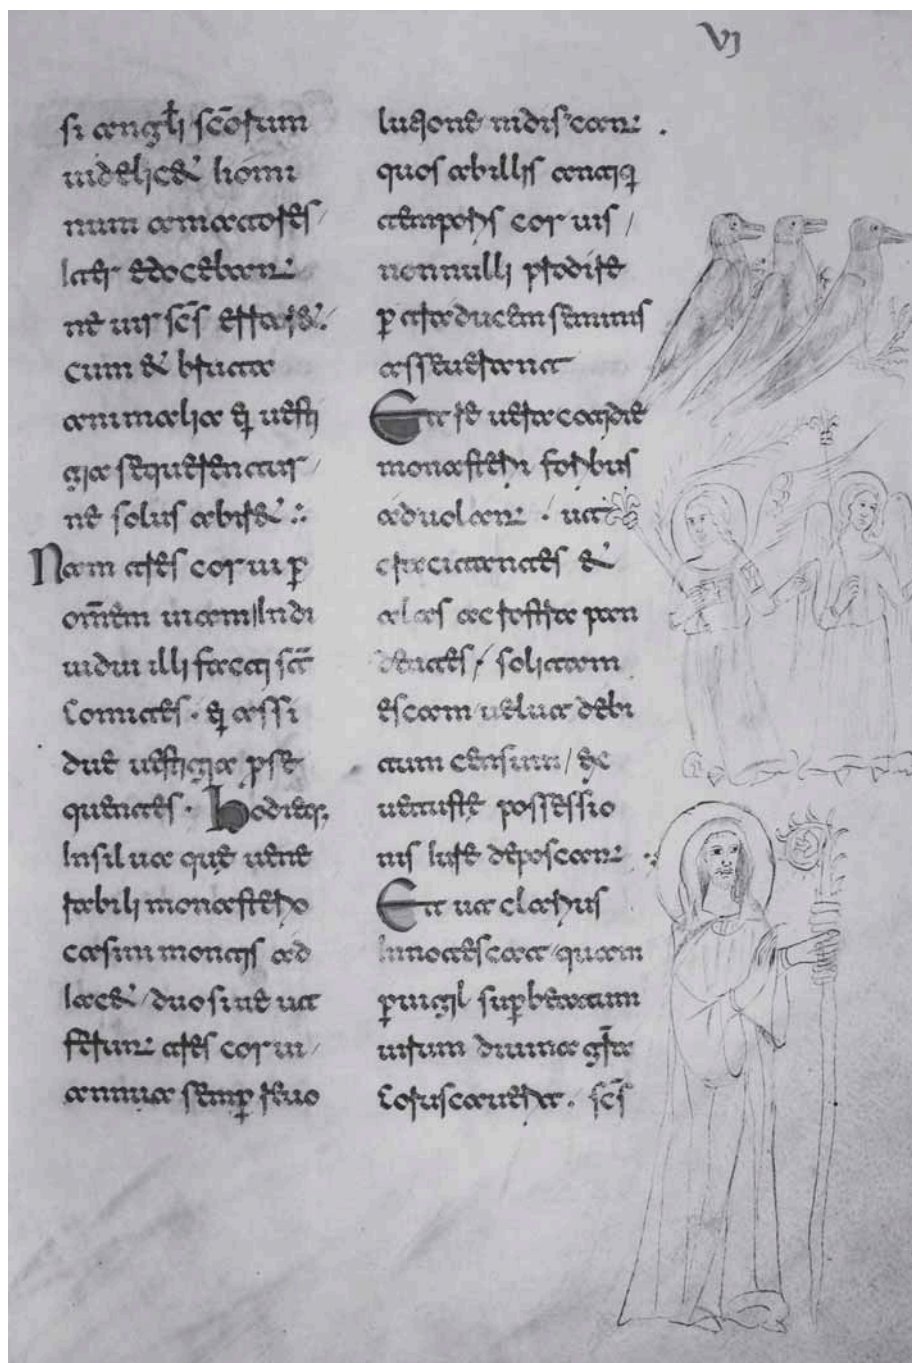 VI
si angłi scōrum
uidelicet homi
num amatores /
iter edocebant
ne uir scs̄ effaret .
cum et bruta
animalia ei uesti
gia sequerentur /
ne solus abiret :
Nam tres corui p̱
om̄em uiam Indi
uidui illi
Comites . ei assi
due uestigia p̱se
quentes . hodieq;
In silua que uene
rabili monasterio
casini montis ad
iacet / duo siue ut
ferunt tres corui /
annua semp̱ reuo
lutione nidificant .
quos ab illis antiq
temporis coruis /
nonnulli prodire
p̱ traducem seminis
asseuerant
Et re uera cotidie
monasterii foribus
aduolant . ut
crocitantes et
alas ac rostra pan
dentes / solitam
escam / uelut debi
tum censum / ex
uetuste possessio
nis iure deposcant :
Et ut clarius
Innotescat / quam
p̱uigil sup̱beatum
uirum diuina gr̄a
Coruscauerit . scs̄